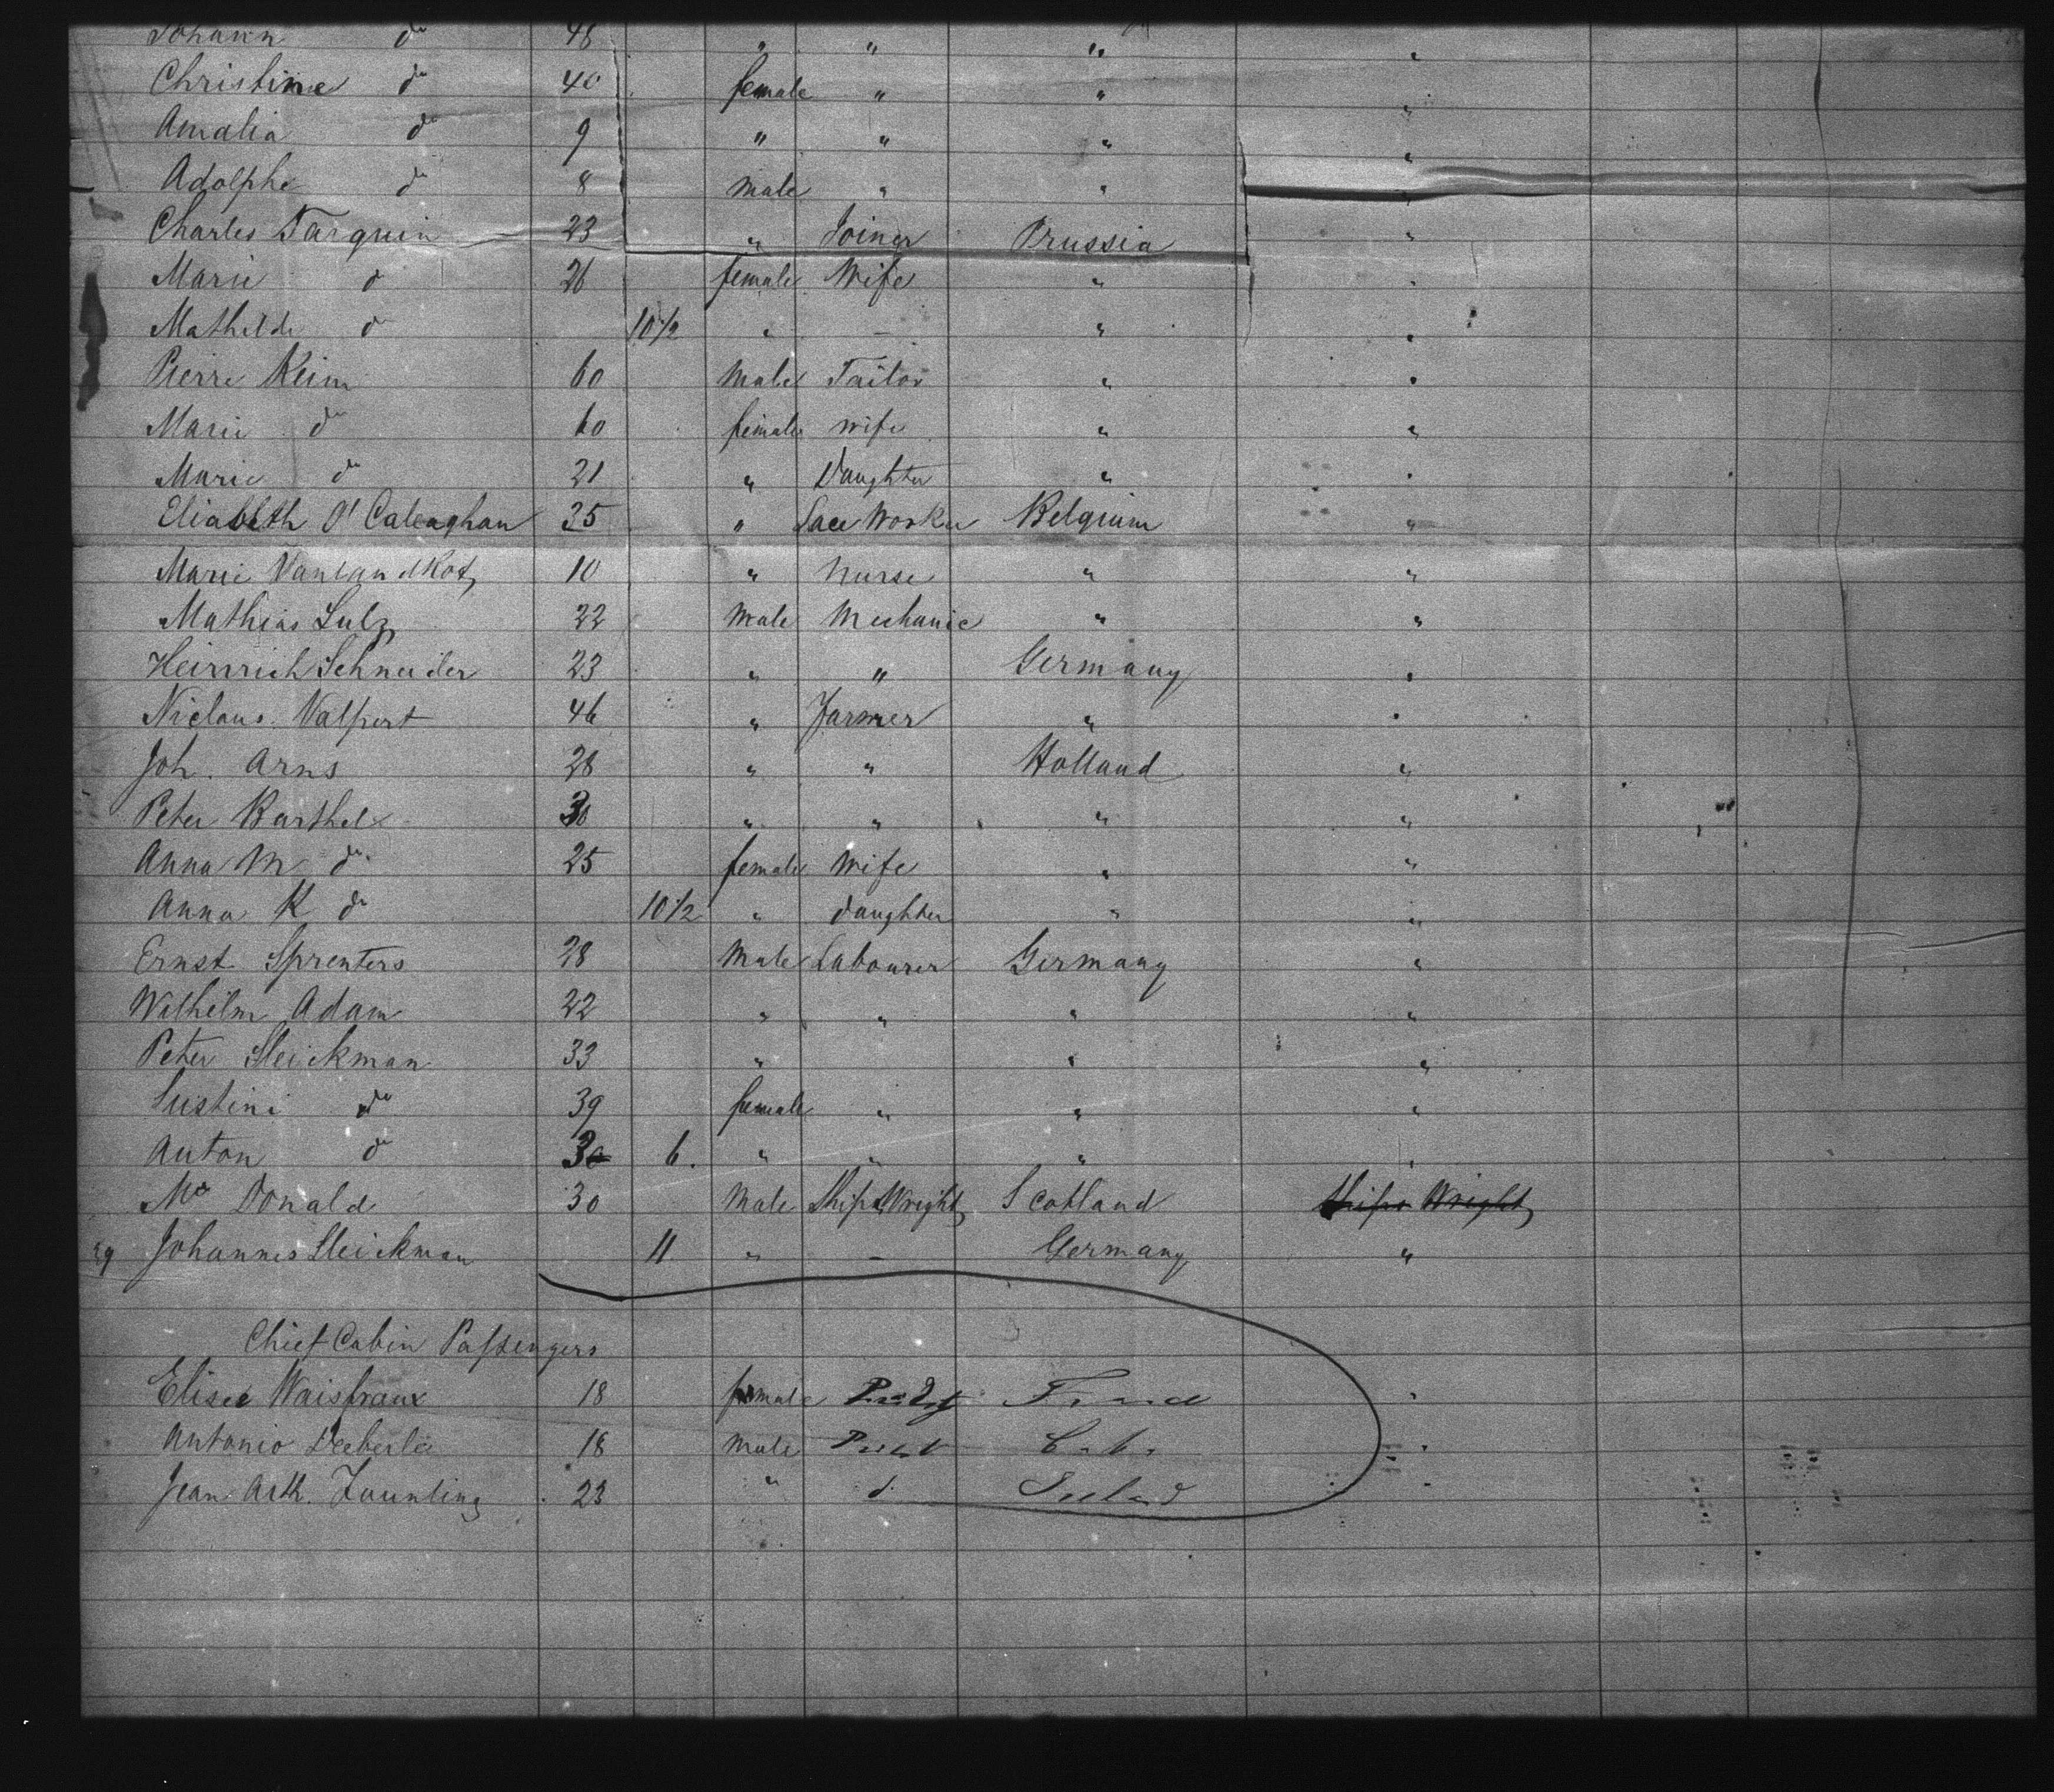 Johann do 48 " " " "
Christine do 40 female " " "
Amalia do 9 " " " "
Adolphe do 8 male " " "
Charles Tarquin 23 " Joiner Prussia "
Marie do 26 female Wife " "
Mathilde do 10 1/2 " – " "
Pierre Keim 60 Male Tailor " "
Marie do 60 female wife " "
Marie do 21 " Daughter " "
Eliabeth O' Caleaghan 35 " Lace Worker Belgium "
Marie 10 " nurse " "
Mathias Lulz 22 male Mechanic " "
Heinrich Schneider 23 " " Germany "
Niclaus Valpert 46 " Farmer " "
Joh. Arns 28 " " Holland "
Peter Barthel 30 " " " "
Anna M do 25 female Wife " "
Anna K do 10 1/2 " daughter " "
Ernst Sprenters 28 Male Labourer Germany "
Wilhelm Adam 22 " " " "
Peter Sleickman 33 " " "
do 39 female " " "
Anton do 30 6. " " " "
Mc Donald 30 Male Ships Wright Scotland Ships Wright
29 Johannes Sleickman 11 " – Germany "
Chief Cabin Passengers
Elise Waisfraux 18 female France "
Antonio 18 Male Cuba "
Jean Arth. 23 " do Ireland "